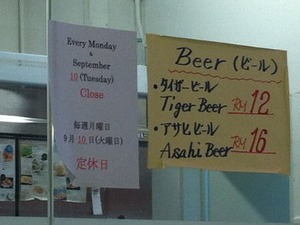 Every Monday
&
September
10 (Tuesday)
Close
毎週月曜日
9月10日(火曜日)
定休日
Beer (ビール)
・タイガービール
Tiger Beer RM 12
・アサヒビール
Asahi Beer RM 16